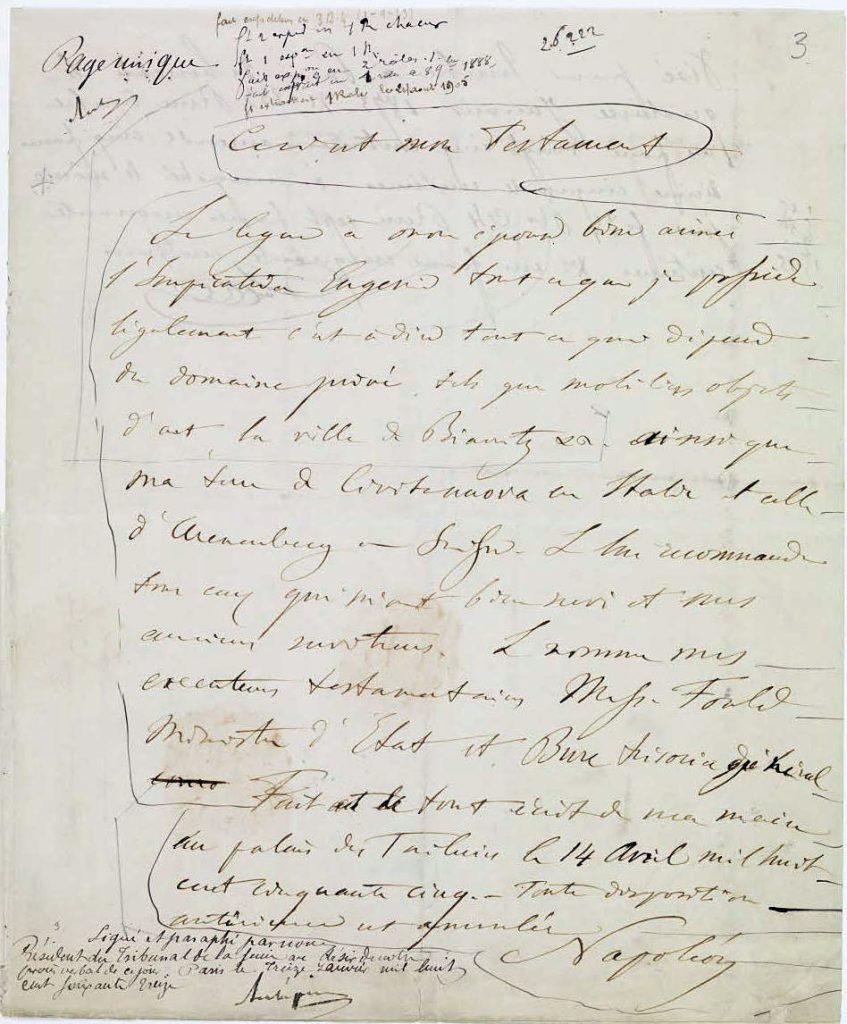 Page unique
fait expédition en 3 R.
fait extrait en
26222
3
Ceci est mon Testament
Je legue a mon epouse bien aimée
l'Impératrice Eugenie tout ce que je possede
légalement c'est à dire tout ce qui dépend
du domaine privé tels que mobiliers objets
d'art, la ville de Biarritz &a ainsi que
ma terre de Civitanova en Italie et celle
d'Arenenberg en Suisse. Je lui recommande
tous ceux qui m'ont bien servi et mes
anciens serviteurs. Je nomme mes
executeurs testamentaires Mess. Fould
Ministre d'Etat et Bure trésorier général
Fait et tout écrit de ma main
au palais des Tuileries le 14 Avril mil huit
cent cinquante cinq. – Toute disposition
antérieure est annulée
Napoléon
Signé et paraphé par nous
Président du Tribunal de la Seine au désir de notre
procès verbal de ce jour. Paris le treize Janvier mil huit
cent soixante treize